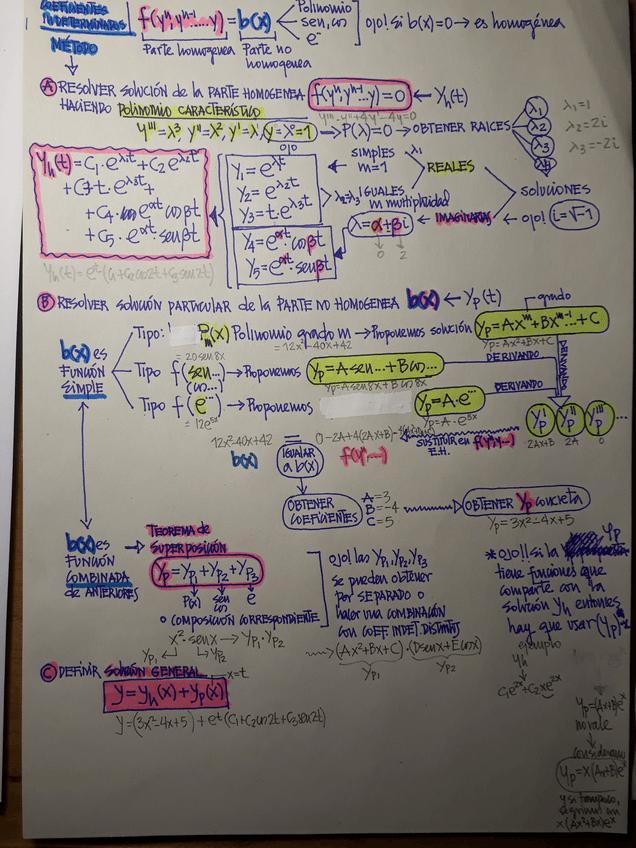 COEFICIENTES INDETERMINADOS
f(yⁿ, yⁿ⁻¹...y) = b(x)
Polinomio
sen, cos
e⁻
ojo! si b(x)=0 → es homogénea
MÉTODO
Parte homogenea
Parte no homogenea
A RESOLVER SOLUCIÓN de la PARTE HOMOGENEA f(yⁿ, yⁿ⁻¹...y)=0 ← Yh(t)
HACIENDO POLINOMIO CARACTERÍSTICO
y'''=λ³, y''=λ², y'=λ, y=λ⁰=1 → P(λ)=0 → OBTENER RAICES
ojo
λ1
λ2
λ3
λ4
λ1=1
λ2=2i
λ3=-2i
Yh(t)=C1·e^λ1t+C2e^λ2t
+C3·t·e^λ3t+
+C4·e^αt cosβt
+C5·e^αt senβt
Yh(t)=e^t·(C1+C2cos2t+C3sen2t)
Y1=e^λt
Y2=e^λ2t
Y3=t·e^λ3t
Y4=e^αt·cosβt
Y5=e^αt·senβt
SIMPLES m=1
λ2=λ3! IGUALES
m multiplicidad
REALES
λ=α+βi
0 2
IMAGINARIAS
SOLUCIONES
ojo! i=√-1
B RESOLVER SOLUCIÓN PARTICULAR de la PARTE NO HOMOGENEA b(x) ← Yp(t)
b(x) es FUNCIÓN SIMPLE
Tipo: Pm(x) Polinomio grado m → Proponemos solución Yp=Ax^m+Bx^m-1...+C
grado
=12x²-40x+42
Yp=Ax²+Bx+C
=20sen8x
Tipo f(sen... (cos...) → Proponemos Yp=Asen...+Bcos...
Yp=Asen8x+Bcos8x
DERIVANDO
Tipo f(e⁻) → Proponemos Yp=A·e⁻
=12e^5x
Yp=A·e^5x
DERIVANDO
DERIVANDO
Yp' Yp'' Yp''' ...
2Ax+B 2A 0
12x²-40x+42
b(x)
=
IGUALAR a b(x)
f(yⁿ,...)
SUSTITUIR en E.H. f(yⁿ,y...)
OBTENER COEFICIENTES
A=3
B=-4
C=5
OBTENER Yp concreta
Yp=3x²-4x+5
b(x) es FUNCIÓN COMBINADA de ANTERIORES
TEOREMA de SUPERPOSICIÓN
Yp=Yp1+Yp2+Yp3
P(x) sen cos e
o composición correspondiente
x²·senx → Yp1·Yp2
Yp1 Yp2
ojo! las Yp1, Yp2, Yp3
se pueden obtener
por SEPARADO o
hacer una COMBINACIÓN
con COEF. INDET. DISTINTOS
(Ax²+Bx+C)·(Dsenx+Ecosx)
Yp1 Yp2
*OJO!! si la Yp
tiene funciones que
comparte con la
solución Yh entonces
hay que usar (Yp)*
ejemplo
Yh
C1e^2x+C2xe^2x
Yp=(Ax+B)e^x
no vale
consideramos
Yp=x(Ax+B)e^x
y si tampoco,
x(Ax²+Bx)e^x
C DEFINIR SOLUCIÓN GENERAL x=t
y=yh(x)+yp(x)
y=(3x²-4x+5)+e^t(C1+C2cos2t+C3sen2t)